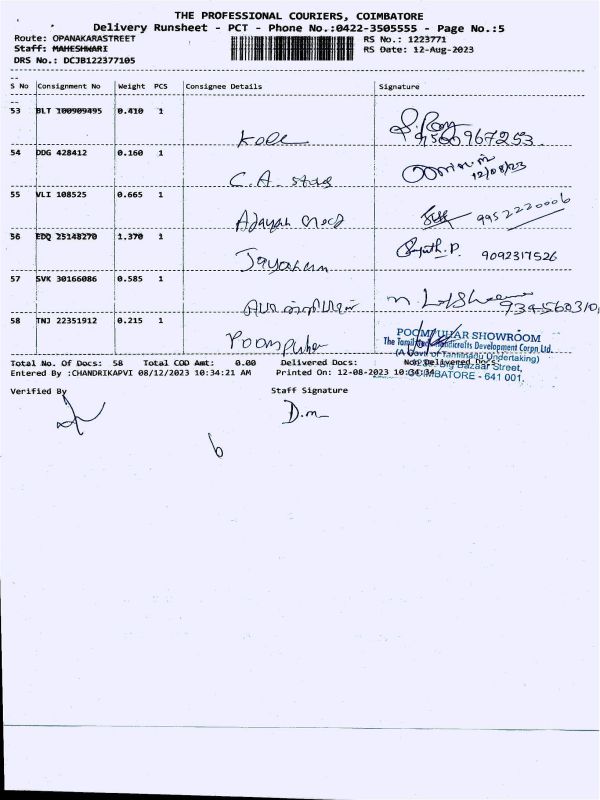 THE PROFESSIONAL COURIERS, COIMBATORE
Delivery Runsheet - PCT - Phone No.:0422-3505555 - Page No.:5
Route: OPANAKARASTREET RS No.: 1223771
Staff: MAHESHWARI RS Date: 12-Aug-2023
DRS No.: DCJB122377105
S No Consignment No Weight PCS Consignee Details Signature
53 BLT 100909495 0.410 1
54 DDG 428412 0.160 1
C.A.
12/08/23
55 VLI 108525 0.665 1
9952220006
56 EDQ 25148270 1.370 1
Jayaram
9092317526
57 SVK 30166086 0.585 1
58 TNJ 22351912 0.215 1
Poompuhar
POOMPUHAR SHOWROOM
The Tamil Nadu Handicrafts Development Corpn Ltd.
(A Govt of Tamilnadu Undertaking)
Big Bazaar Street,
COIMBATORE - 641 001.
Total No. Of Docs: 58 Total COD Amt: 0.00 Delivered Docs: Non Delivered Docs:
Entered By :CHANDRIKAPVI 08/12/2023 10:34:21 AM Printed On: 12-08-2023 10:34:34
Verified By Staff Signature
D.m